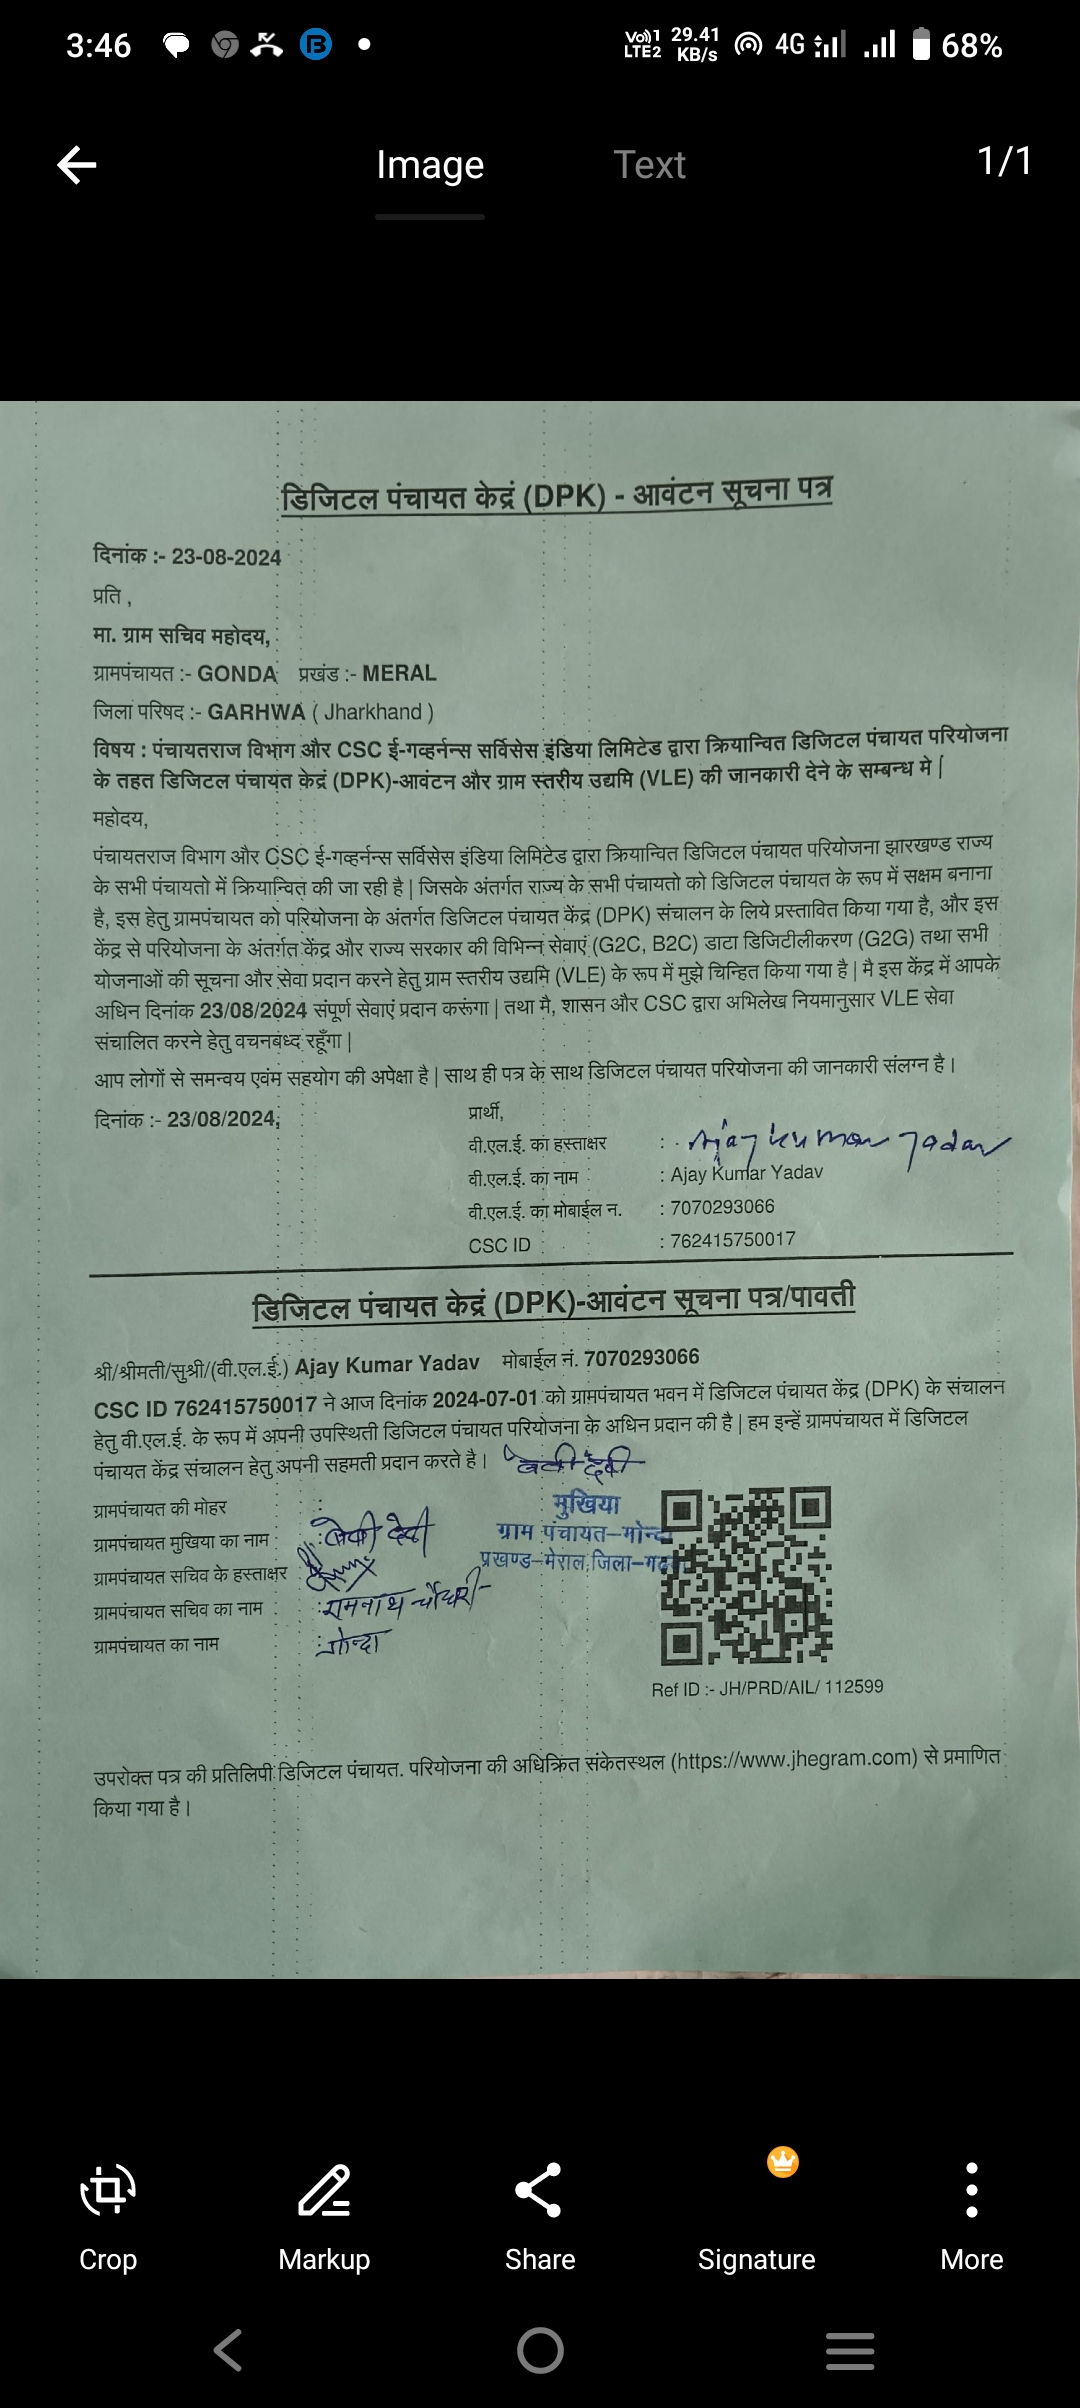 3:46
Vo)) 1 LTE2 29.41 KB/s 4G 68%
Image Text 1/1
डिजिटल पंचायत केद्रं (DPK) - आवंटन सूचना पत्र
दिनांक :- 23-08-2024
प्रति ,
मा. ग्राम सचिव महोदय,
ग्रामपंचायत :- GONDA प्रखंड :- MERAL
जिला परिषद :- GARHWA ( Jharkhand )
विषय : पंचायतराज विभाग और CSC ई-गव्हर्नन्स सर्विसेस इंडिया लिमिटेड द्वारा क्रियान्वित डिजिटल पंचायत परियोजना
के तहत डिजिटल पंचायत केद्रं (DPK)-आवंटन और ग्राम स्तरीय उद्यमि (VLE) की जानकारी देने के सम्बन्ध मे |
महोदय,
पंचायतराज विभाग और CSC ई-गव्हर्नन्स सर्विसेस इंडिया लिमिटेड द्वारा क्रियान्वित डिजिटल पंचायत परियोजना झारखण्ड राज्य
के सभी पंचायतो में क्रियान्वित की जा रही है | जिसके अंतर्गत राज्य के सभी पंचायतो को डिजिटल पंचायत के रूप में सक्षम बनाना
है, इस हेतु ग्रामपंचायत को परियोजना के अंतर्गत डिजिटल पंचायत केंद्र (DPK) संचालन के लिये प्रस्तावित किया गया है, और इस
केंद्र से परियोजना के अंतर्गत केंद्र और राज्य सरकार की विभिन्न सेवाएं (G2C, B2C) डाटा डिजिटीलीकरण (G2G) तथा सभी
योजनाओं की सूचना और सेवा प्रदान करने हेतु ग्राम स्तरीय उद्यमि (VLE) के रूप में मुझे चिन्हित किया गया है | मै इस केंद्र में आपके
अधिन दिनांक 23/08/2024 संपूर्ण सेवाएं प्रदान करूंगा | तथा मै, शासन और CSC द्वारा अभिलेख नियमानुसार VLE सेवा
संचालित करने हेतु वचनबध्द रहूँगा |
आप लोगों से समन्वय एवंम सहयोग की अपेक्षा है | साथ ही पत्र के साथ डिजिटल पंचायत परियोजना की जानकारी संलग्न है।
दिनांक :- 23/08/2024,
प्रार्थी,
वी.एल.ई. का हस्ताक्षर : Ajay kumar yadav
वी.एल.ई. का नाम : Ajay Kumar Yadav
वी.एल.ई. का मोबाईल न. : 7070293066
CSC ID : 762415750017
डिजिटल पंचायत केद्रं (DPK)-आवंटन सूचना पत्र/पावती
श्री/श्रीमती/सुश्री/(वी.एल.ई.) Ajay Kumar Yadav मोबाईल नं. 7070293066
CSC ID 762415750017 ने आज दिनांक 2024-07-01 को ग्रामपंचायत भवन में डिजिटल पंचायत केंद्र (DPK) के संचालन
हेतु वी.एल.ई. के रूप में अपनी उपस्थिती डिजिटल पंचायत परियोजना के अधिन प्रदान की है | हम इन्हें ग्रामपंचायत में डिजिटल
पंचायत केंद्र संचालन हेतु अपनी सहमती प्रदान करते है।
ग्रामपंचायत की मोहर :
मुखिया
ग्राम पंचायत-गोन्दा
प्रखण्ड-मेराल, जिला-गढ़वा
ग्रामपंचायत मुखिया का नाम : बेबी देवी
ग्रामपंचायत सचिव के हस्ताक्षर
ग्रामपंचायत सचिव का नाम : रामनाथ चौधरी
ग्रामपंचायत का नाम : गोन्दा
Ref ID :- JH/PRD/AIL/ 112599
उपरोक्त पत्र की प्रतिलिपी डिजिटल पंचायत. परियोजना की अधिक्रित संकेतस्थल (https://www.jhegram.com) से प्रमाणित
किया गया है।
Crop Markup Share Signature More